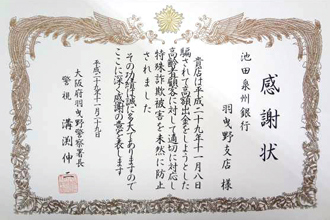 感謝状
池田泉州銀行
羽曳野支店 様
貴店は平成二十九年十一月八日
騙されて高額出金をしようとした
高齢者顧客に対して適切に対応し
特殊詐欺被害を未然に防止
されました
その功績は誠に多大でありますので
ここに深く感謝の意を表します
平成二十九年十一月二十九日
大阪府羽曳野警察署長
警視 溝渕伸一